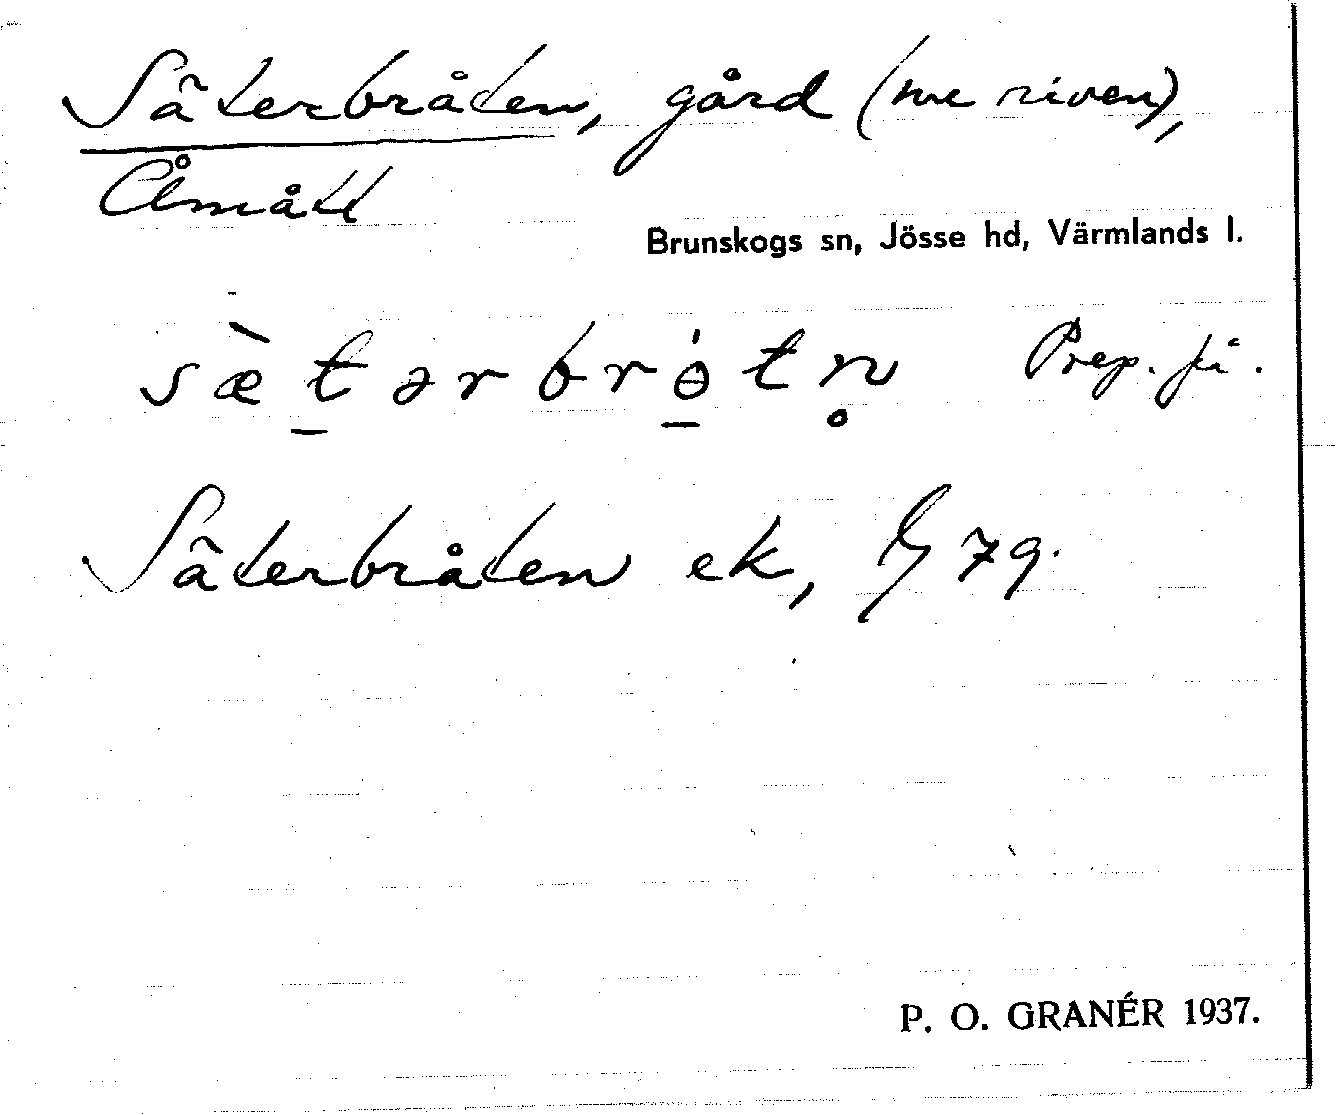 Säterbråten, gård (nu riven),
Åmått
Brunskogs sn, Jösse hd, Värmlands l.
sæ̀t̠ərbrɵ̠́tn̥ Prep. på.
Säterbråten ek, G 79.
P. O. GRANÉR 1937.